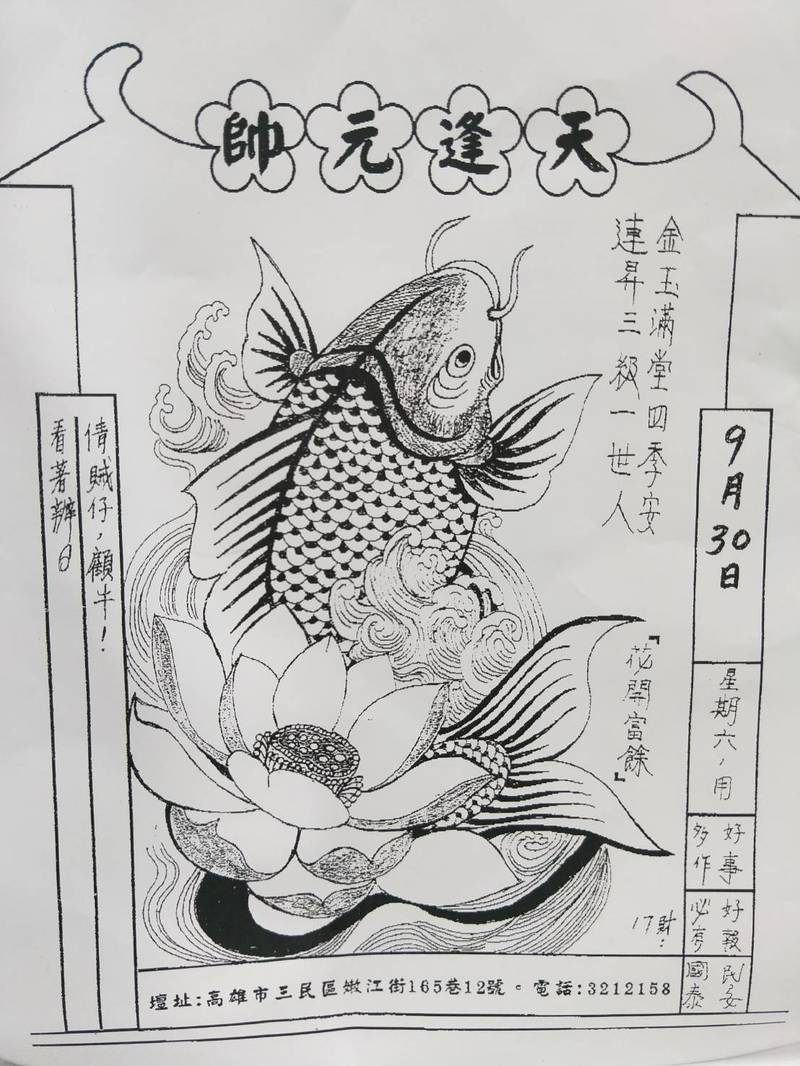 天逢元帥
金玉滿堂四季安
連昇三級一世人
9月30日
星期六，用
好事
多作
好報
必有
民安
國泰
『花開富餘』
17財：
倩賊仔，顧牛！
看著辦日
壇址:高雄市三民區嫩江街165巷12號。電話:3212158